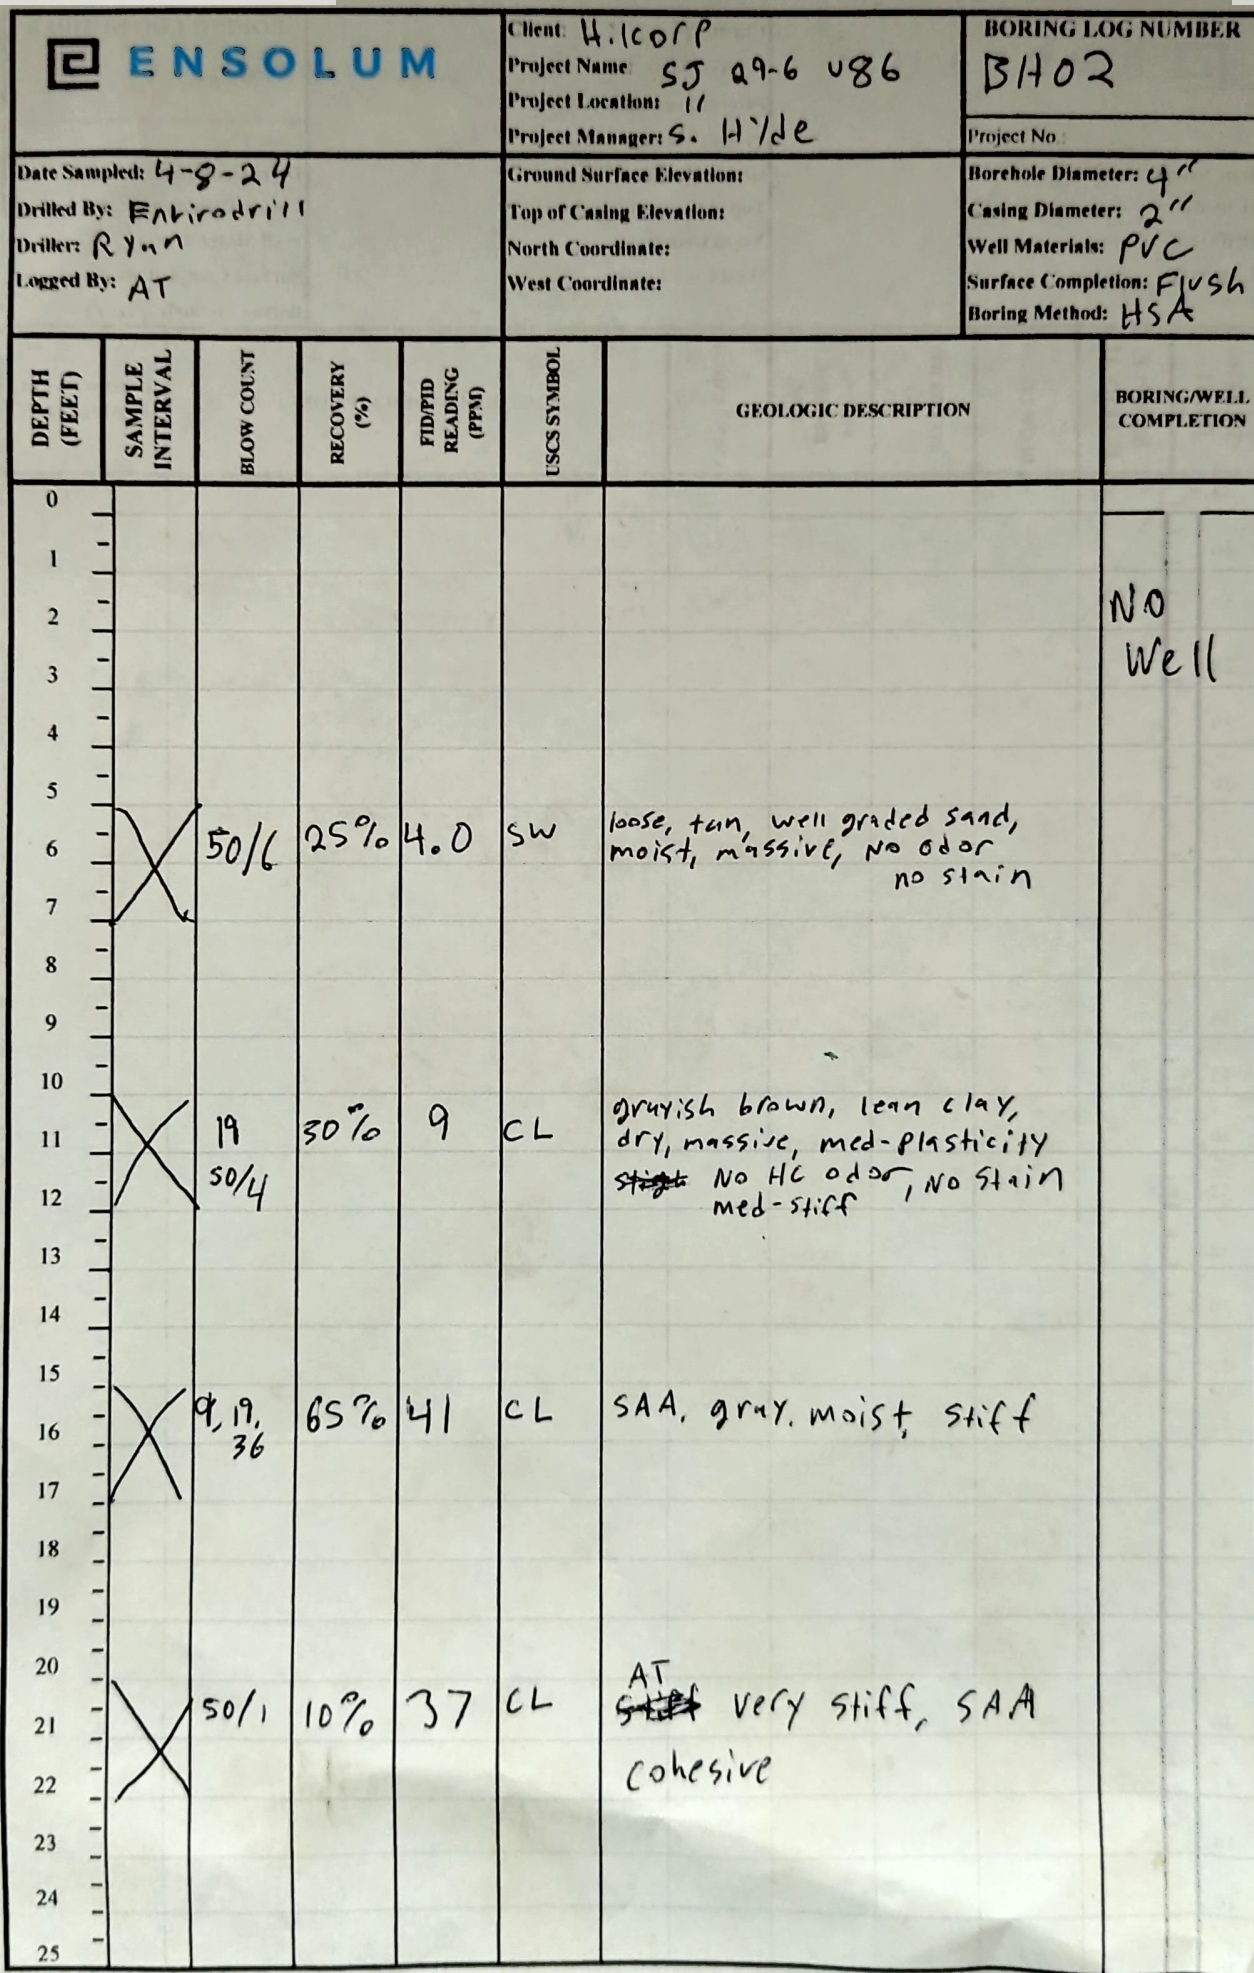 ENSOLUM
Client: Hilcorp
Project Name: SJ 29-6 U86
Project Location: "
Project Manager: S. Hyde
BORING LOG NUMBER
BH02
Project No.
Date Sampled: 4-8-24
Drilled By: Envirodrill
Driller: Ryan
Logged By: AT
Ground Surface Elevation:
Top of Casing Elevation:
North Coordinate:
West Coordinate:
Borehole Diameter: 4"
Casing Diameter: 2"
Well Materials: PVC
Surface Completion: Flush
Boring Method: HSA
DEPTH
(FEET)
SAMPLE
INTERVAL
BLOW COUNT
RECOVERY
(%)
FID/PID
READING
(PPM)
USCS SYMBOL
GEOLOGIC DESCRIPTION
BORING/WELL
COMPLETION
0
1
2
No
3
Well
4
5
6
50/6 25% 4.0 SW
loose, tan, well graded sand,
moist, massive, No odor
no stain
7
8
9
10
11
19 30% 9 CL
50/4
grayish brown, lean clay,
dry, massive, med-plasticity
No HC odor, No Stain
med-stiff
12
13
14
15
16
9, 19,
36
65% 41 CL SAA, gray, moist, stiff
17
18
19
20
21
50/1 10% 37 CL
AT
stiff very stiff, SAA
cohesive
22
23
24
25